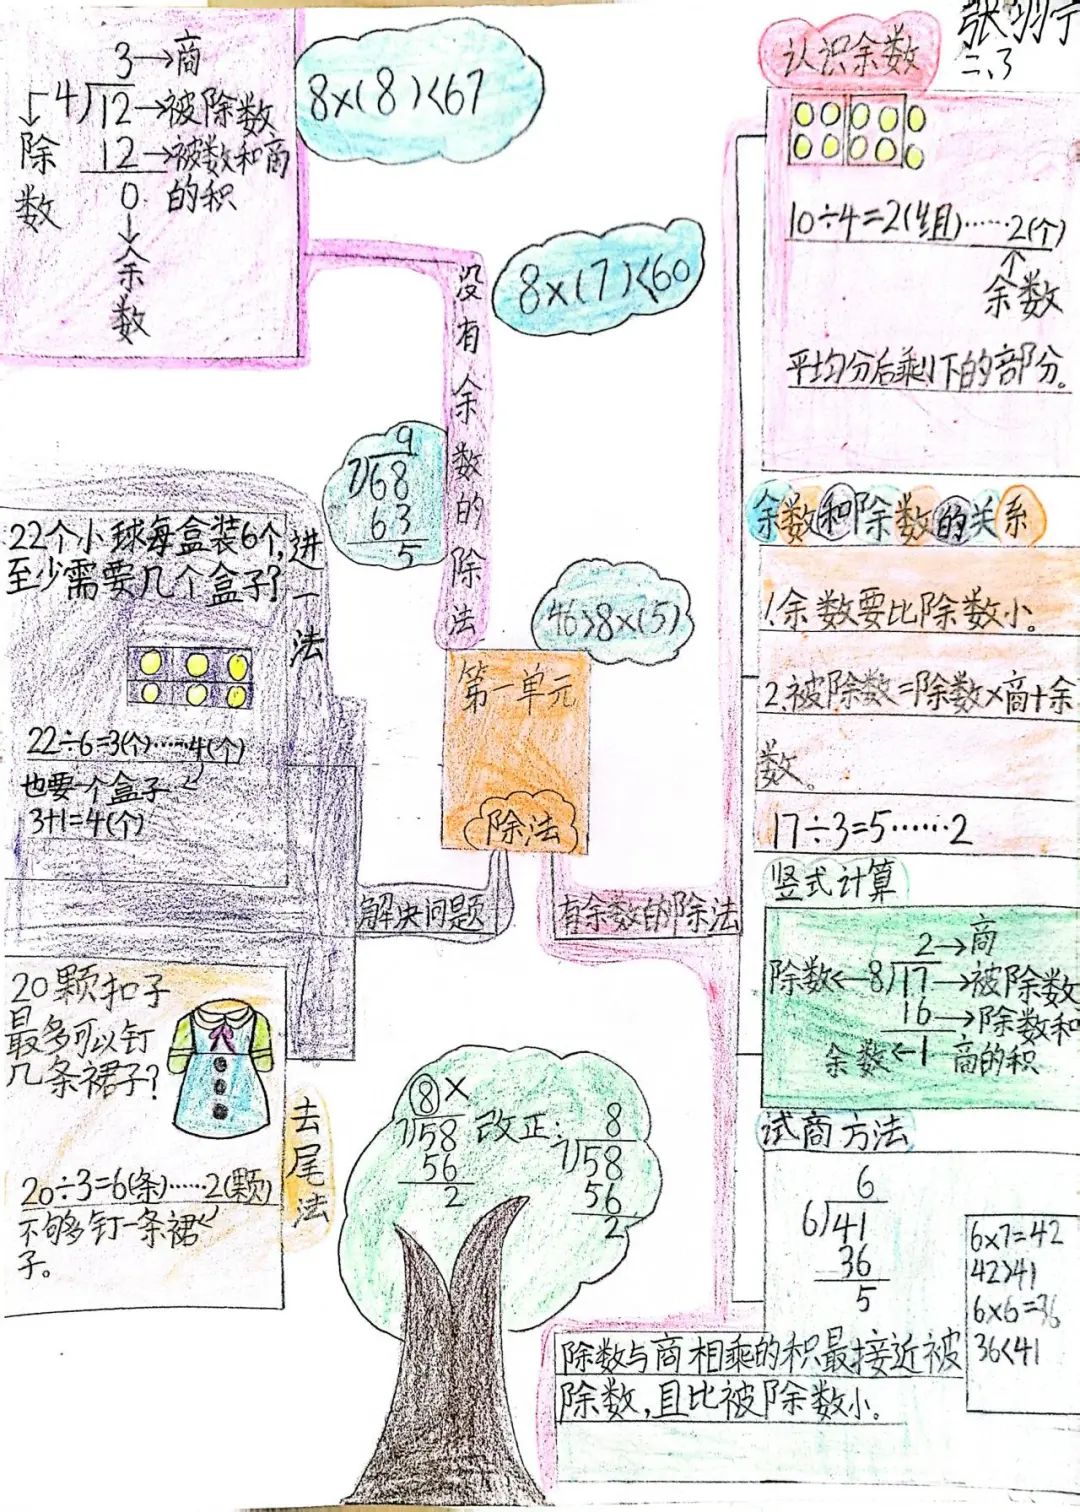 3→商
4)12→被除数
除数
12→被数和商
的积
0
余数
8×(8)<67
8×(7)<60
没有余数的除法
9
7)68
63
5
46>8×(5)
第一单元
除法
进一法
22个小球每盒装6个,
至少需要几个盒子?
22÷6=3(个)……4(个)
也要一个盒子
3+1=4(个)
解决问题
20颗扣子
最多可以钉
几条裙子?
20÷3=6(条)……2(颗)
不够钉一条裙
子。
去尾法
有余数的除法
二、3
认识余数
10÷4=2(组)……2(个)
余数
平均分后剩下的部分。
余数和除数的关系
1.余数要比除数小。
2.被除数=除数×商+余
数。
17÷3=5……2
竖式计算
2→商
除数←8)17→被除数
16→除数和
余数←1 商的积
试商方法
6
6)41
36
5
6×7=42
42>41
6×6=36
36<41
除数与商相乘的积最接近被
除数,且比被除数小。
8×
7)58
56
2
改正:
8
7)58
56
2